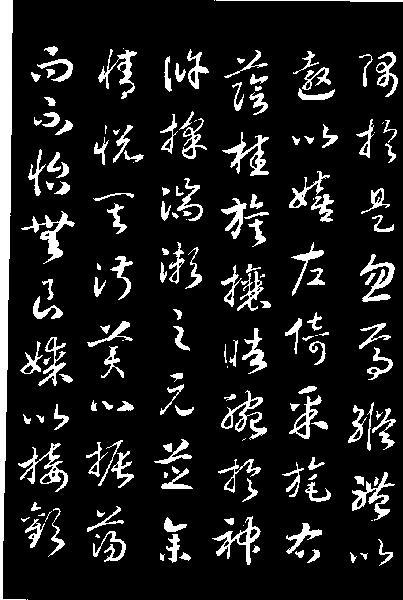 隅於是忽焉縱體以
遨以嬉左倚采旄右
蔭桂旗攘晧腕於神
滸採湍瀨之元芝余
情悅其淑美心振蕩
而不怡無良媒以接歡